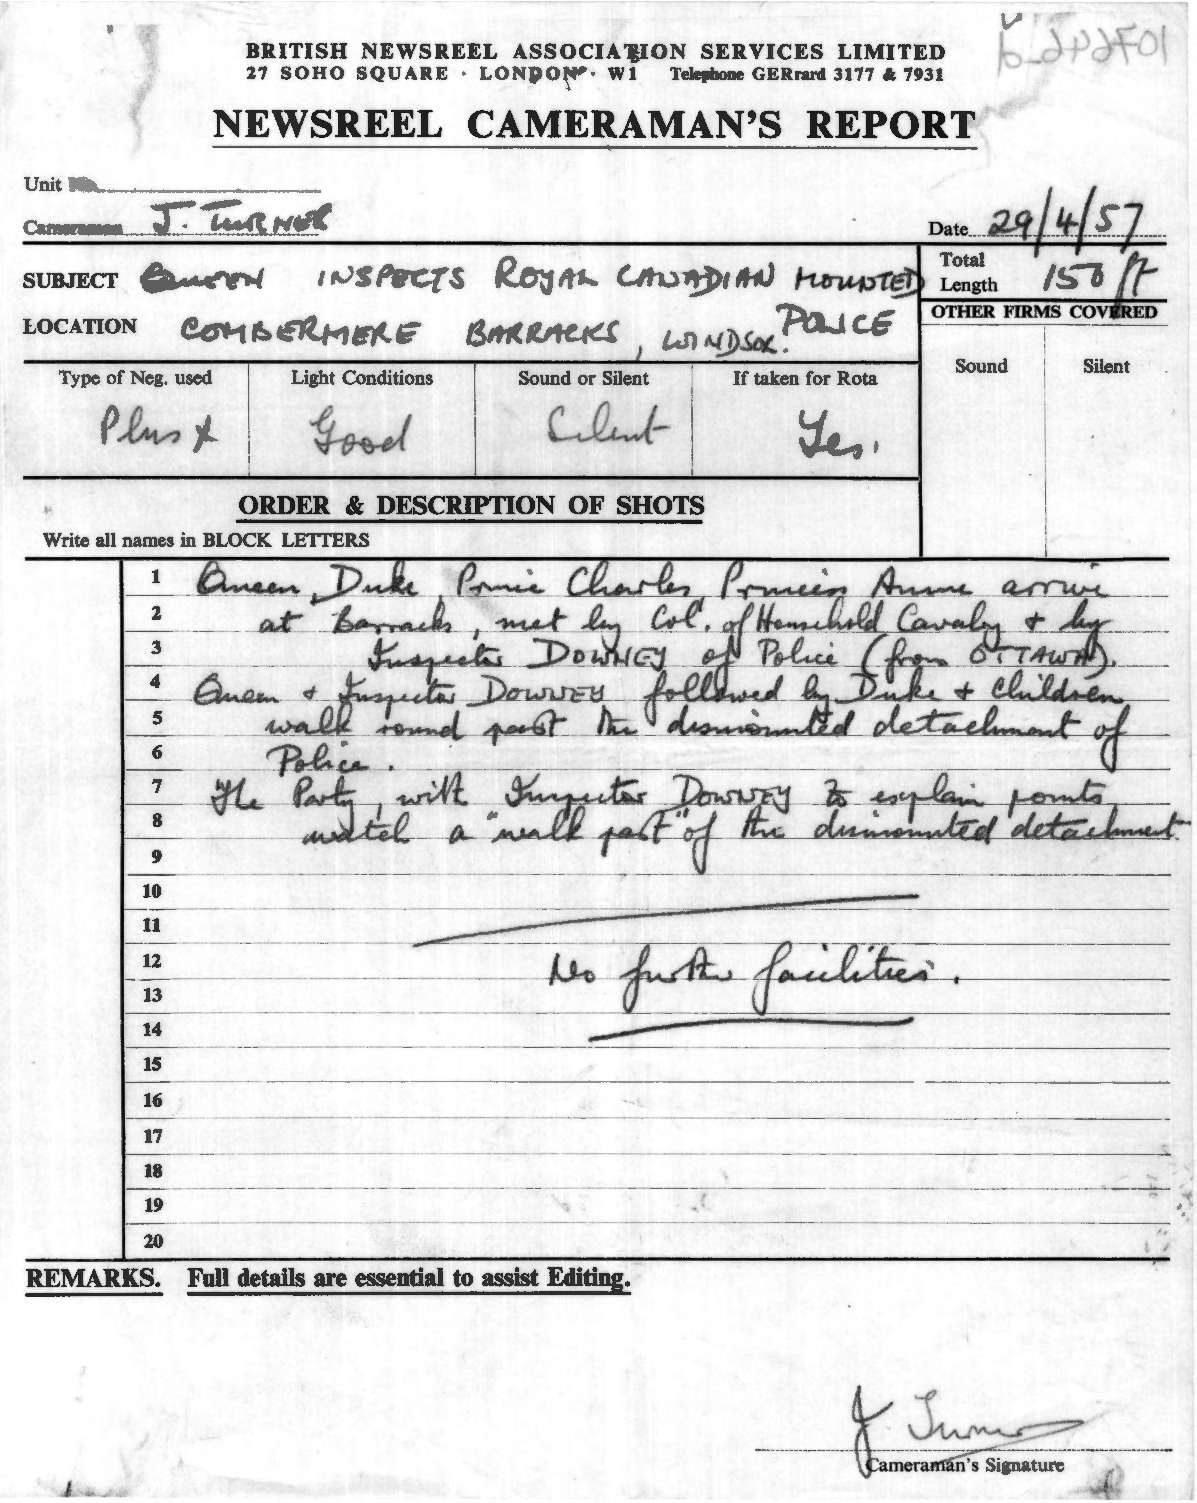 BRITISH NEWSREEL ASSOCIATION SERVICES LIMITED
27 SOHO SQUARE · LONDON · W1 Telephone GERrard 3177 & 7931
NEWSREEL CAMERAMAN'S REPORT
Unit
Cameraman J. TURNER
Date 29/4/57
SUBJECT QUEEN INSPECTS ROYAL CANADIAN MOUNTED
POLICE
Total Length 150 ft
LOCATION COMBERMERE BARRACKS, WINDSOR.
OTHER FIRMS COVERED
Sound Silent
Type of Neg. used Light Conditions Sound or Silent If taken for Rota
Plus X Good Silent Yes.
ORDER & DESCRIPTION OF SHOTS
Write all names in BLOCK LETTERS
1 Queen, Duke, Prince Charles, Princess Anne arrive
2 at Barracks, met by Col. of Household Cavalry + by
3 Inspector DOWNEY of Police (from OTTAWA).
4 Queen + Inspector DOWNEY followed by Duke + Children
5 walk round past the dismounted detachment of
6 Police.
7 The Party, with Inspector DOWNEY to explain points,
8 watch a "walk past" of the dismounted detachment.
9
10
11
12 No further facilities.
13
14
15
16
17
18
19
20
REMARKS. Full details are essential to assist Editing.
J. Turner
Cameraman's Signature